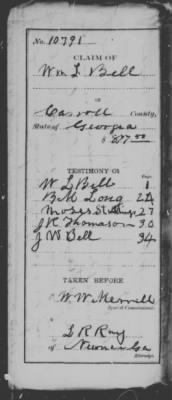 No. 10791
CLAIM OF
Wm L Bell
OF
Carroll County,
State of Georgia
$ 277.50
TESTIMONY OF
Page
W L Bell 1
B M Long 24
Moses 27
J K Thomason 30
J W Bell 34
TAKEN BEFORE
W. W. Merrell
Special Commissioner.
L R Ray
of Newnan Ga
Attorney.